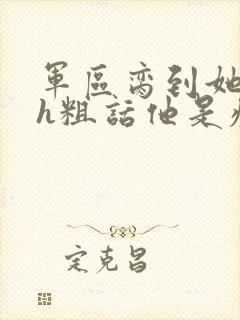 軍區离到她
h粗話他是
定克昌